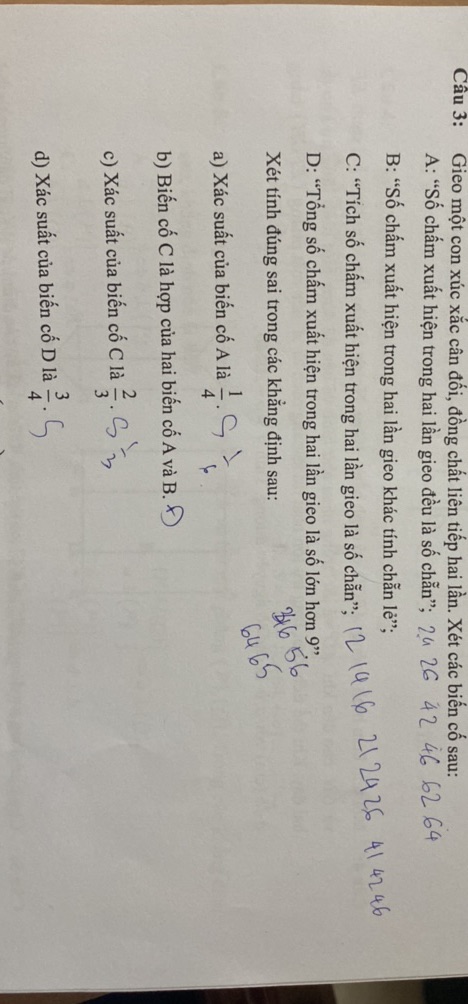 Câu 3: Gieo một con xúc xắc cân đối, đồng chất liên tiếp hai lần. Xét các biến cố sau:
A: “Số chấm xuất hiện trong hai lần gieo đều là số chẵn”; 24 26 42 46 62 64
B: “Số chấm xuất hiện trong hai lần gieo khác tính chẵn lẻ”;
C: “Tích số chấm xuất hiện trong hai lần gieo là số chẵn”; 12 14 16 21 24 26 41 42 46
D: “Tổng số chấm xuất hiện trong hai lần gieo là số lớn hơn 9”
46 56
64 65
Xét tính đúng sai trong các khẳng định sau:
a) Xác suất của biến cố A là 1/4. S 1/6
b) Biến cố C là hợp của hai biến cố A và B.
c) Xác suất của biến cố C là 2/3. S 1/3
d) Xác suất của biến cố D là 3/4. S